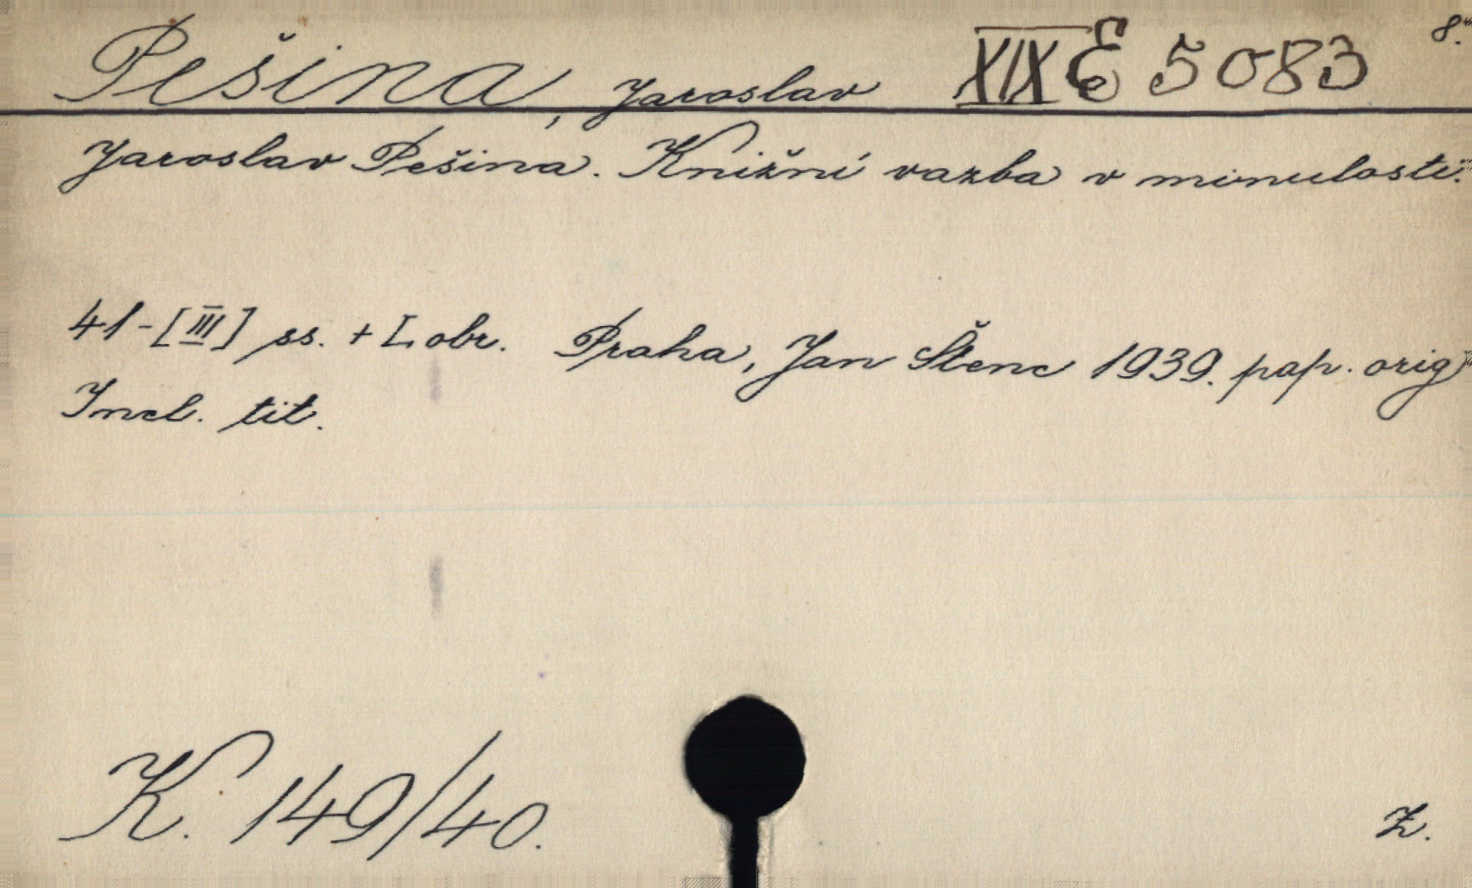 Pešina, Jaroslav XIX E 5083 8.°
Jaroslav Pešina. Knižní vazba v minulosti.
41-[III] ss. + L obr. Praha, Jan Štenc 1939. pap. orig
Incl. tit.
K. 149/40.
Z.